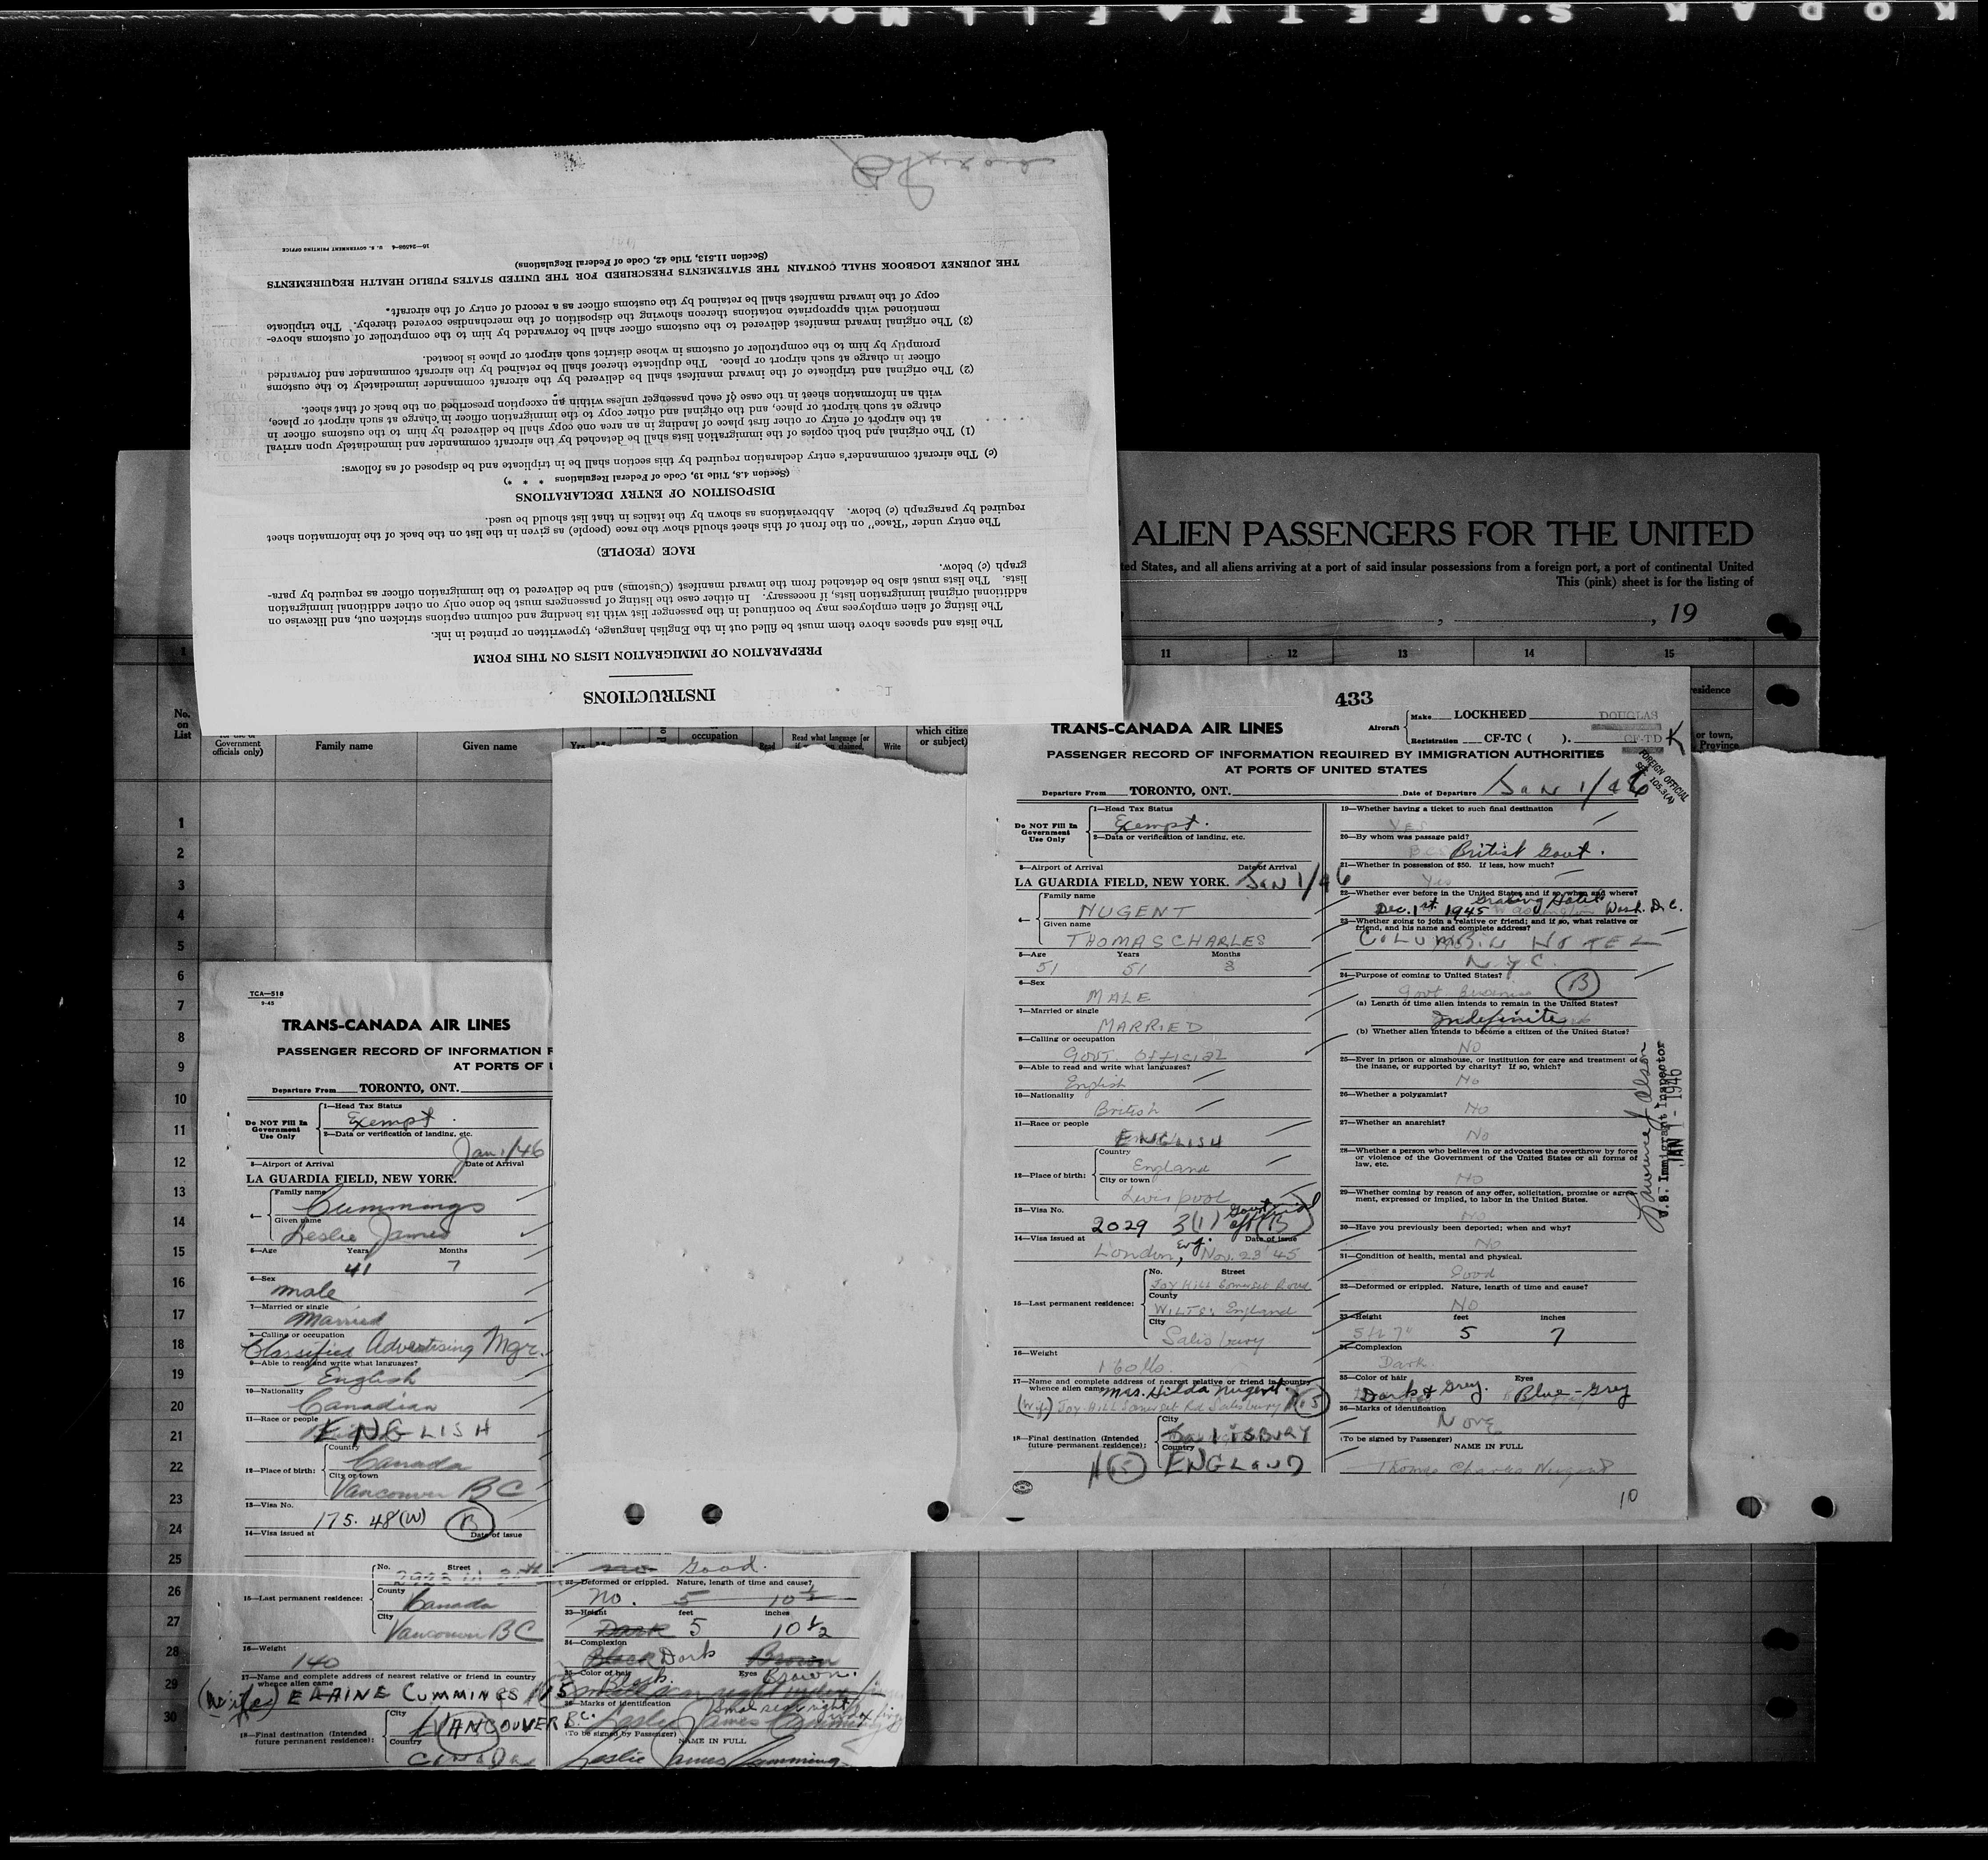 KODAK SAFETY FILM
INSTRUCTIONS
PREPARATION OF IMMIGRATION LISTS ON THIS FORM
The lists and spaces above them must be filled out in the English language, typewritten or printed in ink.
The listing of alien employees may be continued in the passenger list with its heading and column captions stricken out, and likewise on
additional original immigration lists, if necessary. In either case the listing of passengers must be done only on other additional immigration
lists. The lists must also be detached from the inward manifest (Customs) and be delivered to the immigration officer as required by para-
graph (c) below.
RACE (PEOPLE)
The entry under "Race" on the front of this sheet should show the race (people) as given in the list on the back of the information sheet
required by paragraph (c) below. Abbreviations as shown by the italics in that list should be used.
DISPOSITION OF ENTRY DECLARATIONS
(Section 4.8, Title 19, Code of Federal Regulations * * *)
(c) The aircraft commander's entry declaration required by this section shall be in triplicate and be disposed of as follows:
(1) The original and both copies of the immigration lists shall be detached by the aircraft commander and immediately upon arrival
at the airport of entry or other first place of landing in an area one copy shall be delivered by him to the customs officer in
charge at such airport or place, and the original and other copy to the immigration officer in charge at such airport or place,
with an information sheet in the case of each passenger unless within an exception prescribed on the back of that sheet.
(2) The original and triplicate of the inward manifest shall be delivered by the aircraft commander immediately to the customs
officer in charge at such airport or place. The duplicate thereof shall be retained by the aircraft commander and forwarded
promptly by him to the comptroller of customs in whose district such airport or place is located.
(3) The original inward manifest delivered to the customs officer shall be forwarded by him to the comptroller of customs above-
mentioned with appropriate notations thereon showing the disposition of the merchandise covered thereby. The triplicate
copy of the inward manifest shall be retained by the customs officer as a record of entry of the aircraft.
THE JOURNEY LOGBOOK SHALL CONTAIN THE STATEMENTS PRESCRIBED FOR THE UNITED STATES PUBLIC HEALTH REQUIREMENTS
(Section 11.513, Title 42, Code of Federal Regulations)
16—24598-4 U. S. GOVERNMENT PRINTING OFFICE
ALIEN PASSENGERS FOR THE UNITED
ted States, and all aliens arriving at a port of said insular possessions from a foreign port, a port of continental United
This (pink) sheet is for the listing of
, , 19
1 11 12 13 14 15
No. on List
Government officials only)
Family name
Given name
occupation
Read
Read what language [or
Write
which citize
or subject)
residence
or town,
Province
1
2
3
4
5
6
7
8
9
10
11
12
13
14
15
16
17
18
19
20
21
22
23
24
25
26
27
28
29
30
TCA—518
9-45
TRANS-CANADA AIR LINES
PASSENGER RECORD OF INFORMATION
AT PORTS OF
Departure From TORONTO, ONT.
Do NOT Fill In Government Use Only
1—Head Tax Status
Exempt.
2—Data or verification of landing, etc.
Jan 1/46
3—Airport of Arrival Date of Arrival
LA GUARDIA FIELD, NEW YORK.
4— Family name
Cummings
Given name
Leslie James
5—Age Years Months
41 7
6—Sex
male
7—Married or single
Married
8—Calling or occupation
Classified Advertising Mgr.
9—Able to read and write what languages?
English
10—Nationality
Canadian
11—Race or people
ENGLISH
12—Place of birth: Country
Canada
City or town
Vancouver BC
13—Visa No.
175. 48 (W) B
14—Visa issued at Date of issue
15—Last permanent residence: No. Street
County
Canada
City
Vancouver BC
16—Weight
140
17—Name and complete address of nearest relative or friend in country
whence alien came
(wife) ELAINE CUMMINGS
18—Final destination (Intended future permanent residence): City
VANCOUVER B.C.
Country
CANADA
no Good.
32—Deformed or crippled. Nature, length of time and cause?
No. 5 10 1/2
33—Height feet inches
Dark 5 10 1/2
34—Complexion
Black Dark Brown
35—Color of hair Eyes
Black. Brown.
36—Marks of identification
Small scar right index
Leslie James Cummings
(To be signed by Passenger) NAME IN FULL
Leslie James Cummings
433
TRANS-CANADA AIR LINES
Aircraft Make LOCKHEED DOUGLAS
Registration CF-TC ( ). CF-TD K
PASSENGER RECORD OF INFORMATION REQUIRED BY IMMIGRATION AUTHORITIES
AT PORTS OF UNITED STATES
FOREIGN OFFICIAL
SEC. 105.3(A)
Departure From TORONTO, ONT. Date of Departure Jan 1/46
Do NOT Fill In Government Use Only
1—Head Tax Status
Exempt.
2—Data or verification of landing, etc.
3—Airport of Arrival Date of Arrival
LA GUARDIA FIELD, NEW YORK. JAN 1/46
4— Family name
NUGENT
Given name
THOMAS CHARLES
5—Age Years Months
51 51 8
6—Sex
MALE
7—Married or single
MARRIED
8—Calling or occupation
GOVT. OFFICIAL
9—Able to read and write what languages?
English
10—Nationality
British
11—Race or people
ENGLISH
12—Place of birth: Country
England
City or town
Liverpool
13—Visa No.
2029 3(1) Govt official B
14—Visa issued at Date of issue
London, Eng. Nov. 23 '45
15—Last permanent residence: No. Street
Joy Hill Somerset Road
County
WILTS: England
City
Salisbury
16—Weight
160 lbs.
17—Name and complete address of nearest relative or friend in country
whence alien came Mrs. Hilda Nugent.
(Wife) Joy Hill Somerset Rd Salisbury
18—Final destination (Intended future permanent residence): City
SALISBURY
Country
ENGLAND
19—Whether having a ticket to such final destination
YES
20—By whom was passage paid?
British Govt.
21—Whether in possession of $50. If less, how much?
Yes
22—Whether ever before in the United States and if so, when and where?
Dec. 1st. 1945 Wash. D.C.
23—Whether going to join a relative or friend; and if so, what relative or
friend, and his name and complete address?
COLUMBIA HOTEL
N.Y.C.
24—Purpose of coming to United States?
Govt Business B
(a) Length of time alien intends to remain in the United States?
Indefinite
(b) Whether alien intends to become a citizen of the United States?
NO
25—Ever in prison or almshouse, or institution for care and treatment of
the insane, or supported by charity? If so, which?
No
26—Whether a polygamist?
NO
27—Whether an anarchist?
No
28—Whether a person who believes in or advocates the overthrow by force
or violence of the Government of the United States or all forms of
law, etc.
NO
29—Whether coming by reason of any offer, solicitation, promise or agree-
ment, expressed or implied, to labor in the United States.
NO
30—Have you previously been deported; when and why?
NO
31—Condition of health, mental and physical.
Good
32—Deformed or crippled. Nature, length of time and cause?
NO
33—Height feet inches
5 ft 7" 5 7
34—Complexion
Dark
35—Color of hair Eyes
Dark & Grey. Blue-Grey
36—Marks of identification
None
(To be signed by Passenger) NAME IN FULL
Thomas Charles Nugent
10
U.S. Immigrant Inspector
JAN 1 - 1946